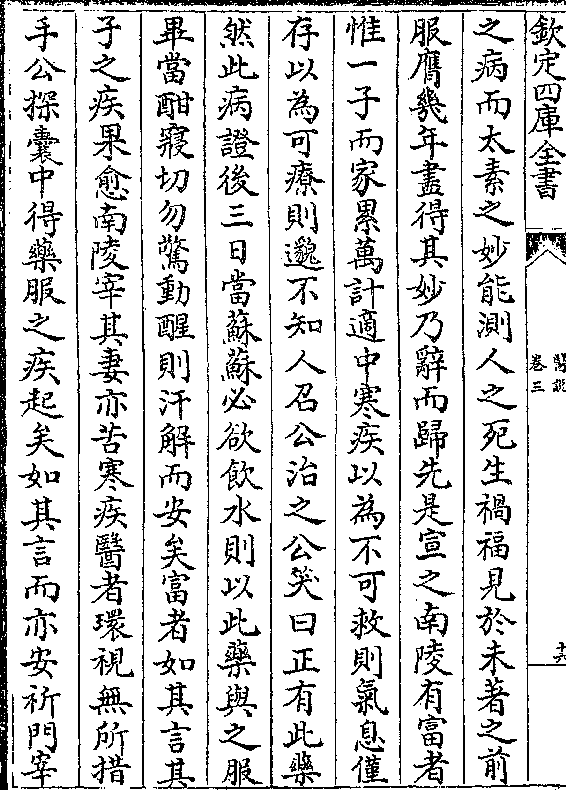 欽定四庫全書
醫說
卷三
十六
之病而太素之妙能測人之死生禍福見於未著之前
服膺幾年盡得其妙乃辭而歸先是宣之南陵有富者
惟一子而家累萬計適中寒疾以為不可救則氣息僅
存以為可療則邈不知人召公治之公笑曰正有此藥
然此病證後三日當蘇蘇必欲飲水則以此藥與之服
畢當酣寢切勿驚動醒則汗解而安矣富者如其言其
子之疾果愈南陵宰其妻亦苦寒疾醫者環視無所措
手公探囊中得藥服之疾起矣如其言而亦安祈門宰